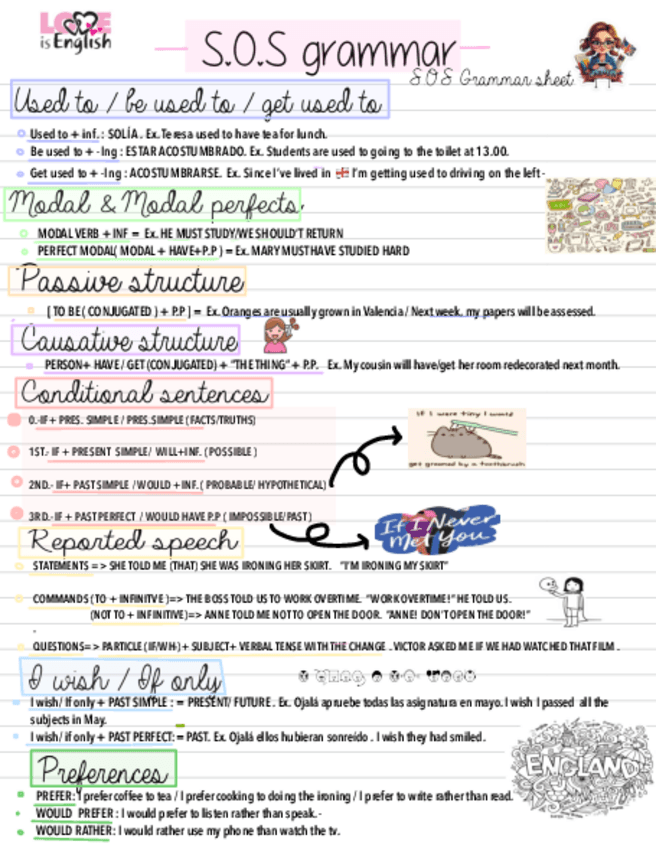 LOVE
is English
S.O.S grammar
S.O.S Grammar sheet
Used to / be used to / get used to
Used to + inf. : SOLÍA. Ex. Teresa used to have tea for lunch.
Be used to + -Ing : ESTAR ACOSTUMBRADO. Ex. Students are used to going to the toilet at 13.00.
Get used to + -Ing : ACOSTUMBRARSE. Ex. Since I've lived in I'm getting used to driving on the left-
Modal & Modal perfects.
MODAL VERB + INF = Ex. HE MUST STUDY/WE SHOULD'T RETURN
PERFECT MODAL( MODAL + HAVE+P.P ) = Ex. MARY MUST HAVE STUDIED HARD
Passive structure
[ TO BE ( CONJUGATED ) + P.P ] = Ex. Oranges are usually grown in Valencia / Next week, my papers will be assessed.
Causative structure
PERSON+ HAVE / GET (CONJUGATED) + "THE THING" + P.P. Ex. My cousin will have/get her room redecorated next month.
Conditional sentences
0.-IF+ PRES. SIMPLE / PRES.SIMPLE (FACTS/TRUTHS)
If I were tiny I would
1ST.- IF + PRESENT SIMPLE/ WILL+INF. ( POSSIBLE )
get groomed by a toothbrush
2ND.- IF+ PAST SIMPLE / WOULD + INF. ( PROBABLE/ HYPOTHETICAL)
3RD.- IF + PAST PERFECT / WOULD HAVE P.P ( IMPOSSIBLE/PAST)
If I Never
Met You
Reported speech
STATEMENTS = > SHE TOLD ME (THAT) SHE WAS IRONING HER SKIRT. "I'M IRONING MY SKIRT"
COMMANDS ( TO + INFINITVE )=> THE BOSS TOLD US TO WORK OVERTIME. "WORK OVERTIME!" HE TOLD US.
(NOT TO + INFINITIVE)=> ANNE TOLD ME NOT TO OPEN THE DOOR. "ANNE! DON'T OPEN THE DOOR!"
QUESTIONS= > PARTICLE ( IF/WH-) + SUBJECT+ VERBAL TENSE WITH THE CHANGE . VICTOR ASKED ME IF WE HAD WATCHED THAT FILM .
I wish / If only
I wish/ If only + PAST SIMPLE : = PRESENT/ FUTURE . Ex. Ojalá apruebe todas las asignatura en mayo. I wish I passed all the
subjects in May.
I wish/ if only + PAST PERFECT: = PAST. Ex. Ojalá ellos hubieran sonreído . I wish they had smiled.
ENGLAND
Preferences
PREFER: I prefer coffee to tea / I prefer cooking to doing the ironing / I prefer to write rather than read.
WOULD PREFER : I would prefer to listen rather than speak.-
WOULD RATHER: I would rather use my phone than watch the tv.